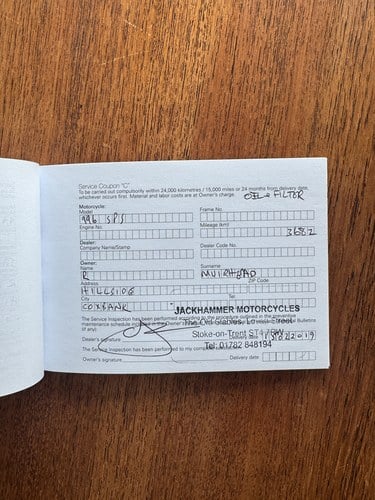 Service Coupon "C"
To be carried out compulsorily within 24,000 kilometres / 15,000 miles or 24 months from delivery date,
whichever occurs first. Material and labor costs are at Owner's charge.
OIL & FILTER
Motorcycle:
Model Frame No.
996 SPS
Engine No. Mileage (km)
3682
Dealer:
Company Name/Stamp Dealer Code No.
Owner:
Name Surname
R MUIRHEAD
Address ZIP Code
HILLSIDE
City Tel.
COXBANK
JACKHAMMER MOTORCYCLES
The Service Inspection has been performed according to the procedure outlined in the preventive
maintenance schedule included in the Owner's Bulletins
if any). The Old Stables, Street
Stoke-on-Trent ST4
Dealer's signature Delivery date 2019
Tel: 01782 848194
The Service Inspection has been performed to my complete
Owner's signature Delivery date